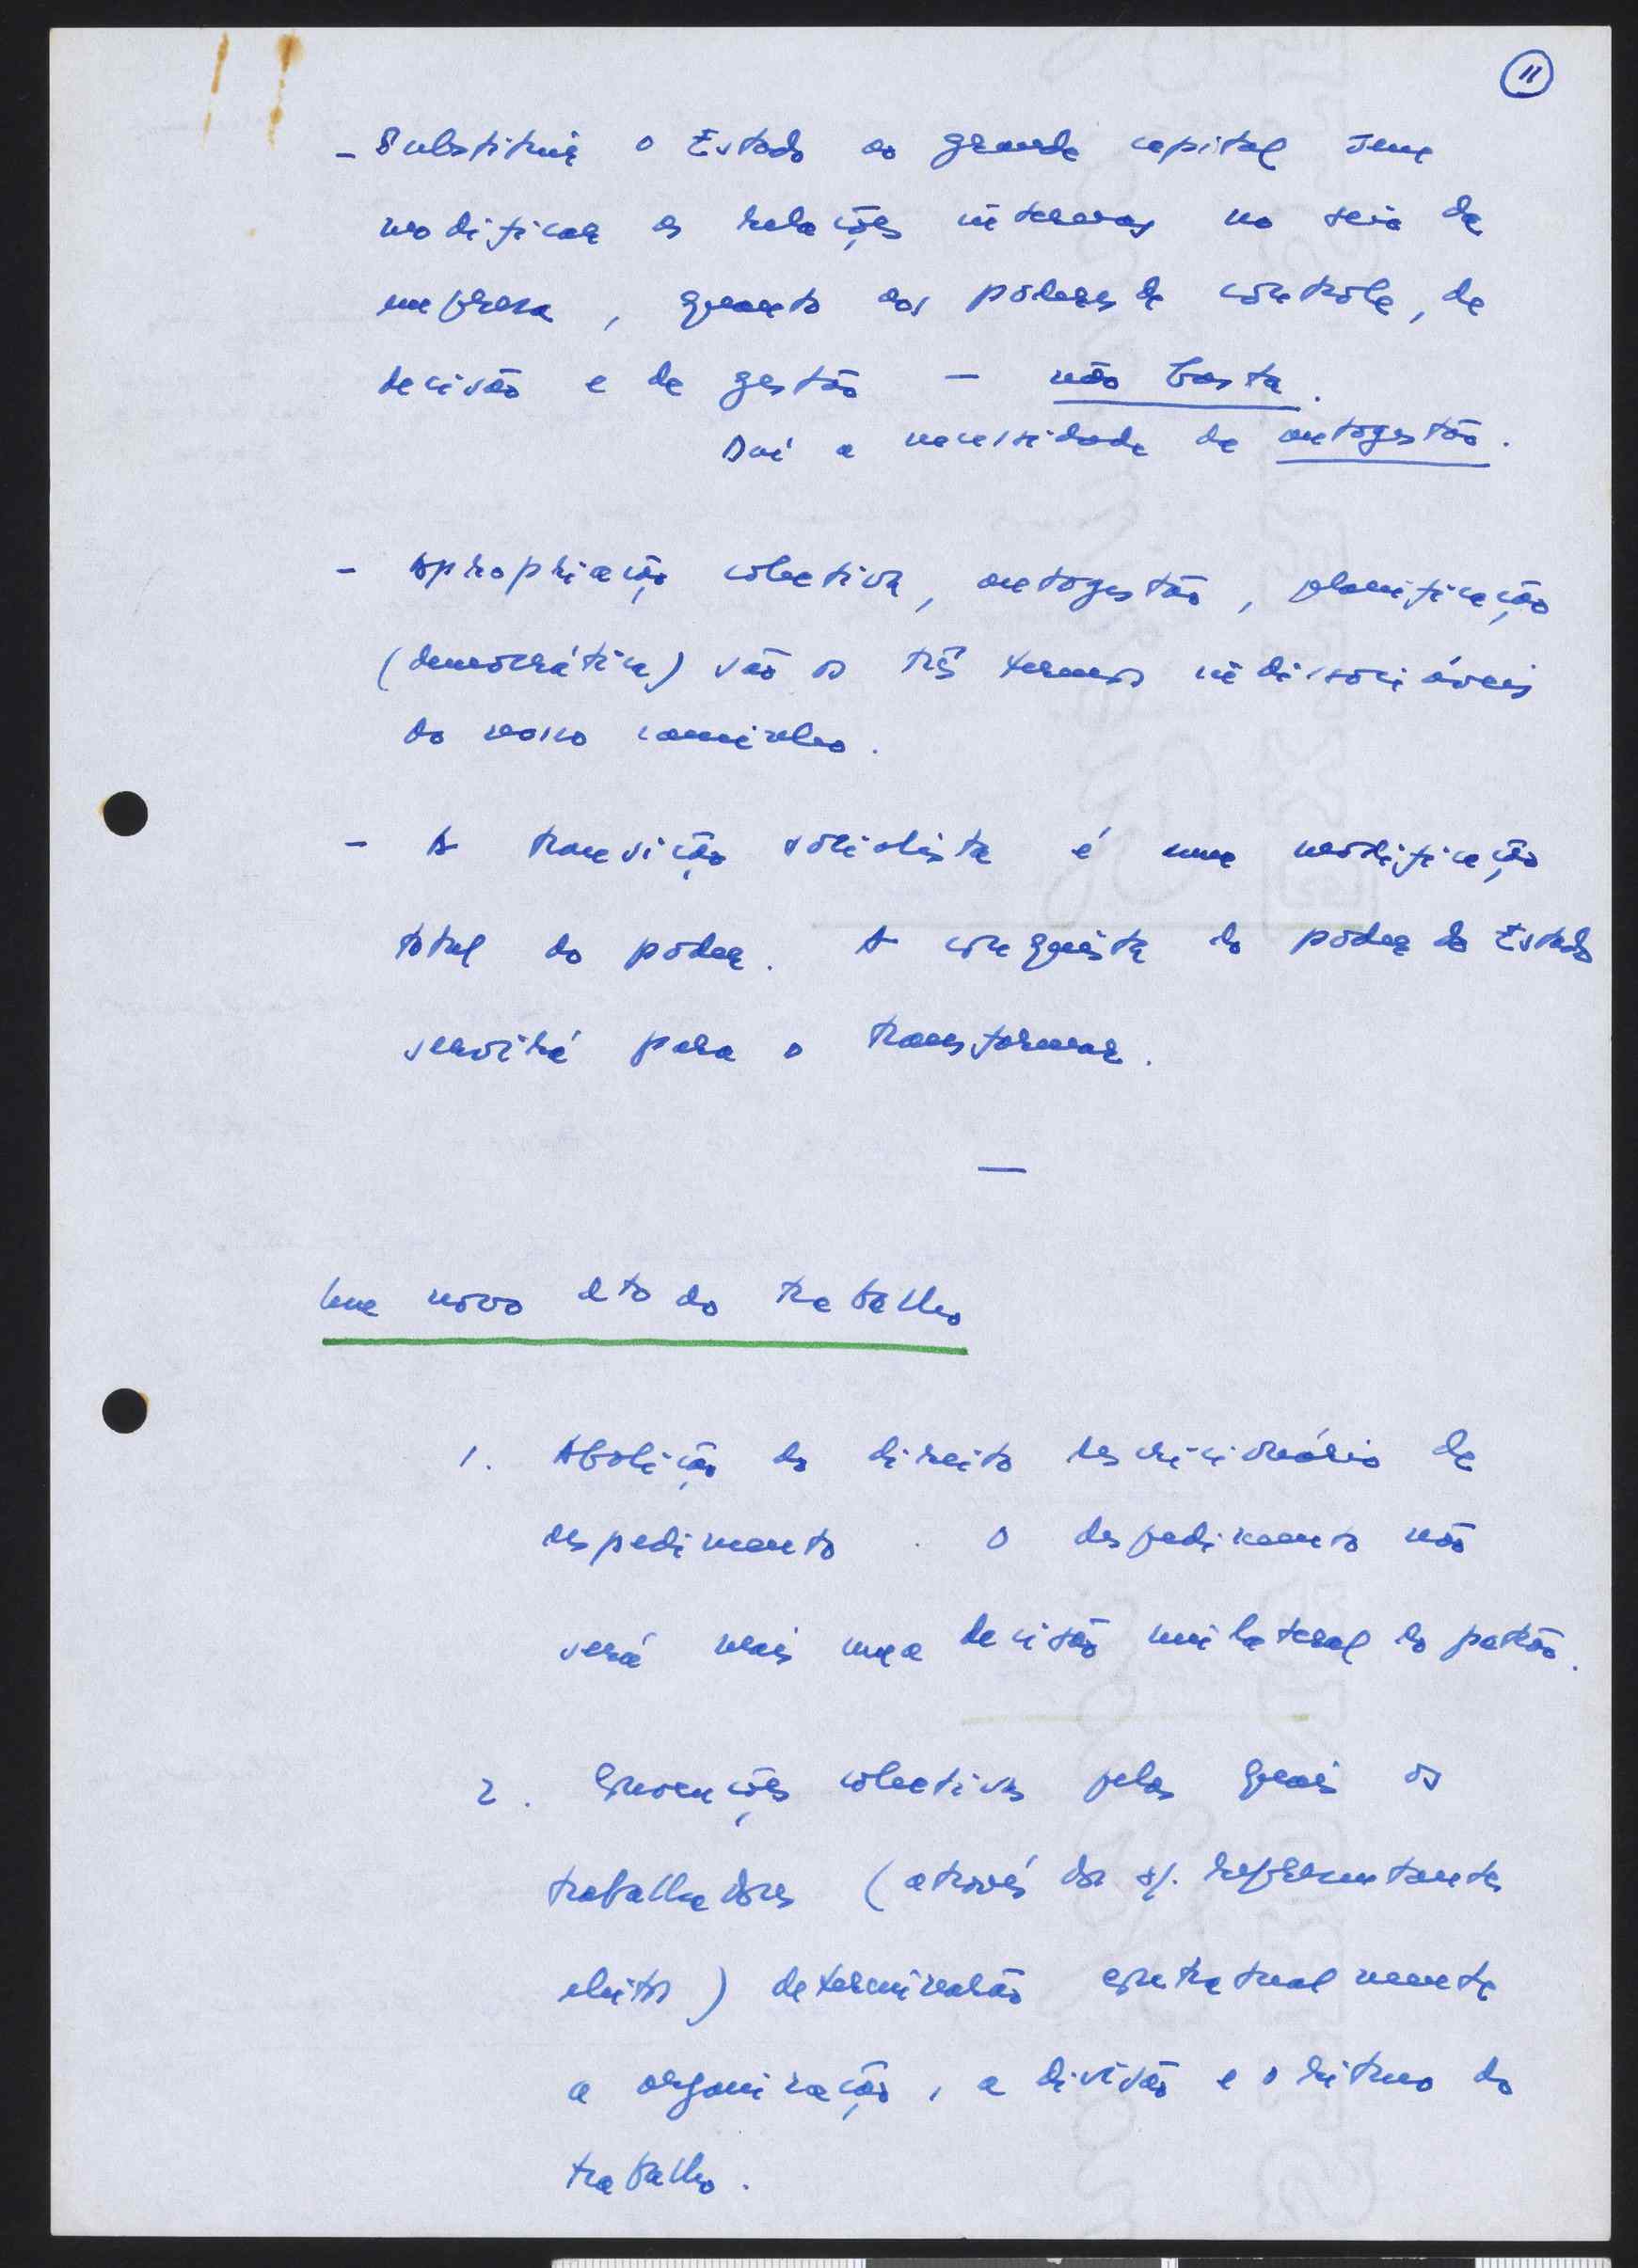 11
- Substituir o Estado ao grande capital sem
modificar as relações internas no seio da
empresa, quanto aos poderes de controle, de
decisão e de gestão — não basta.
Daí a necessidade da autogestão.
- Apropriação colectiva, autogestão, planificação
(democrática) são os três termos indissociáveis
do nosso caminho.
- A transição socialista é uma modificação
total do poder. A conquista do poder do Estado
servirá para o transformar.
—
Um novo dto do trabalho
1. Abolição do direito discricionário de
despedimento. O despedimento não
será mais uma decisão unilateral do patrão.
2. Convenções colectivas pelas quais os
trabalhadores (através dos s/. representantes
eleitos) determinarão contratualmente
a organização, a divisão e o ritmo do
trabalho.